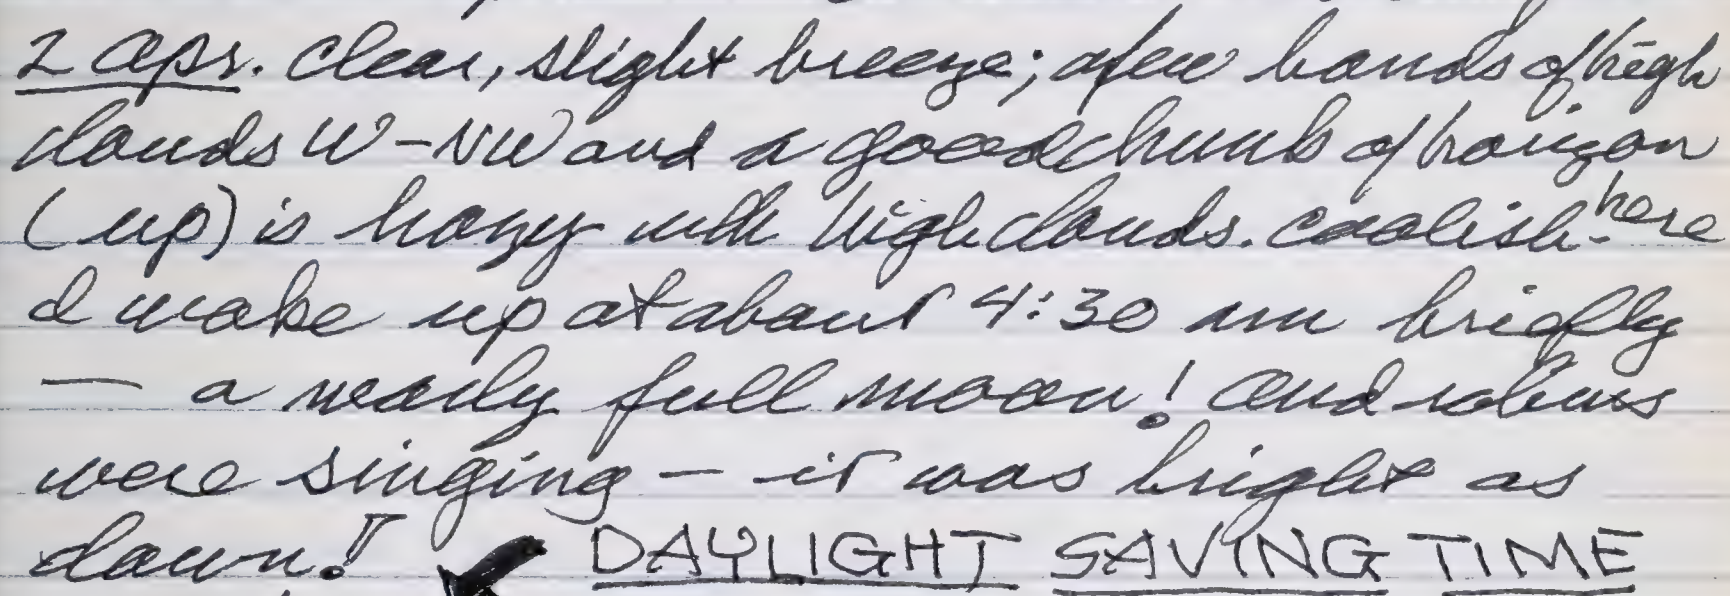 2 Apr. Clear, slight breeze; a few bands of high
clouds W-NW and a good chunk of horizon
(up) is hazy with high clouds. Coolish here
I wake up at about 4:30 am briefly
— a nearly full moon! And robins
were singing — it was bright as
dawn! ✔ DAYLIGHT SAVING TIME